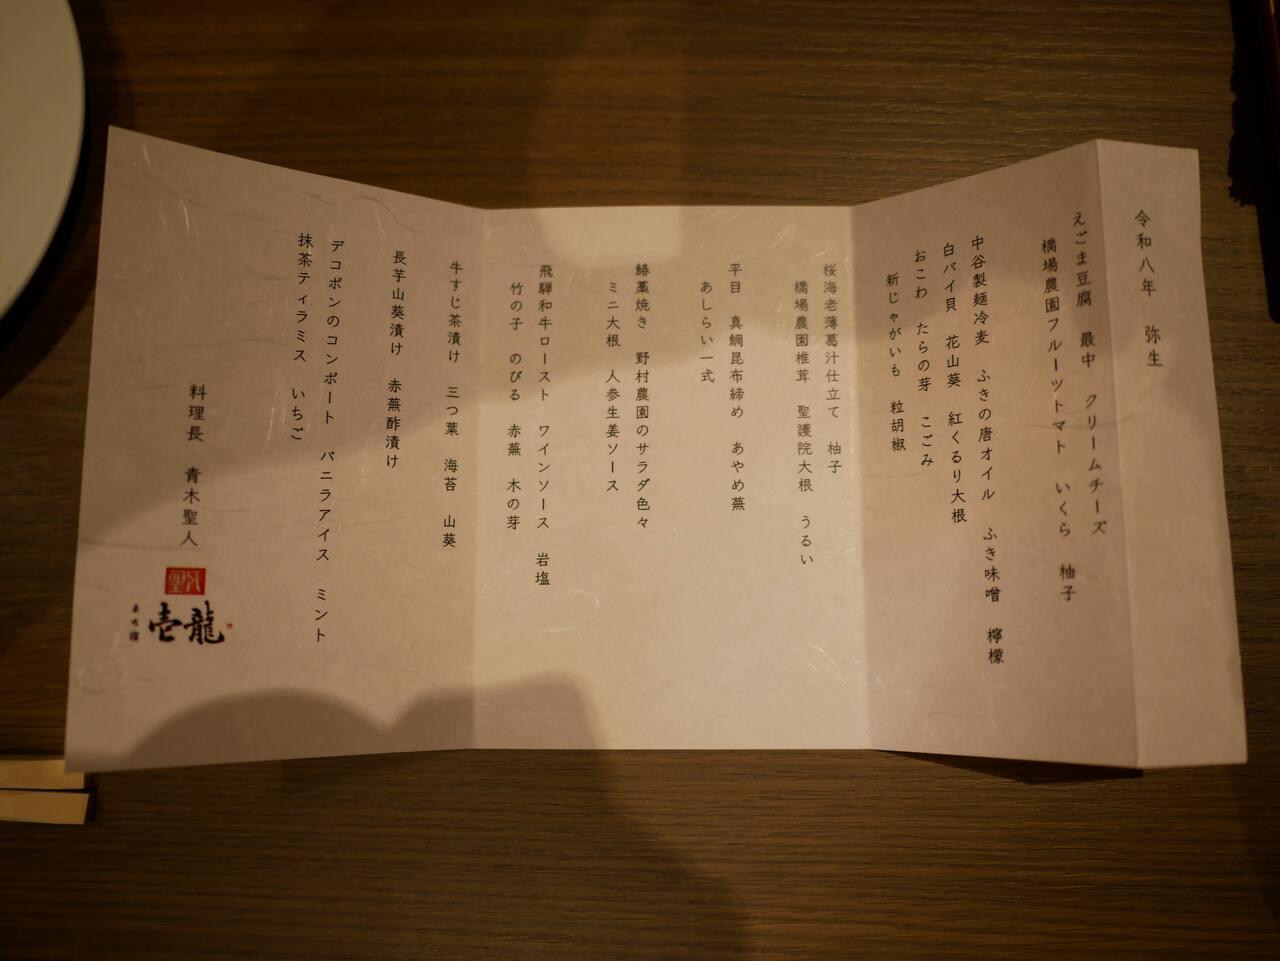 令和八年　弥生
えごま豆腐　最中　クリームチーズ
橋場農園フルーツトマト　いくら　柚子
中谷製麺冷麦　ふきの唐オイル　ふき味噌　檸檬
白バイ貝　花山葵　紅くるり大根
おこわ　たらの芽　こごみ
新じゃがいも　粒胡椒
桜海老薄葛汁仕立て　柚子
橋場農園椎茸　聖護院大根　うるい
平目　真鯛昆布締め　あやめ蕪
あしらい一式
鰆藁焼き　野村農園のサラダ色々
ミニ大根　人参生姜ソース
飛騨和牛ロースト　ワインソース　岩塩
竹の子　のびる　赤蕪　木の芽
牛すじ茶漬け　三つ葉　海苔　山葵
長芋山葵漬け　赤蕪酢漬け
デコポンのコンポート　バニラアイス　ミント
抹茶ティラミス　いちご
料理長　青木聖人
壱龍